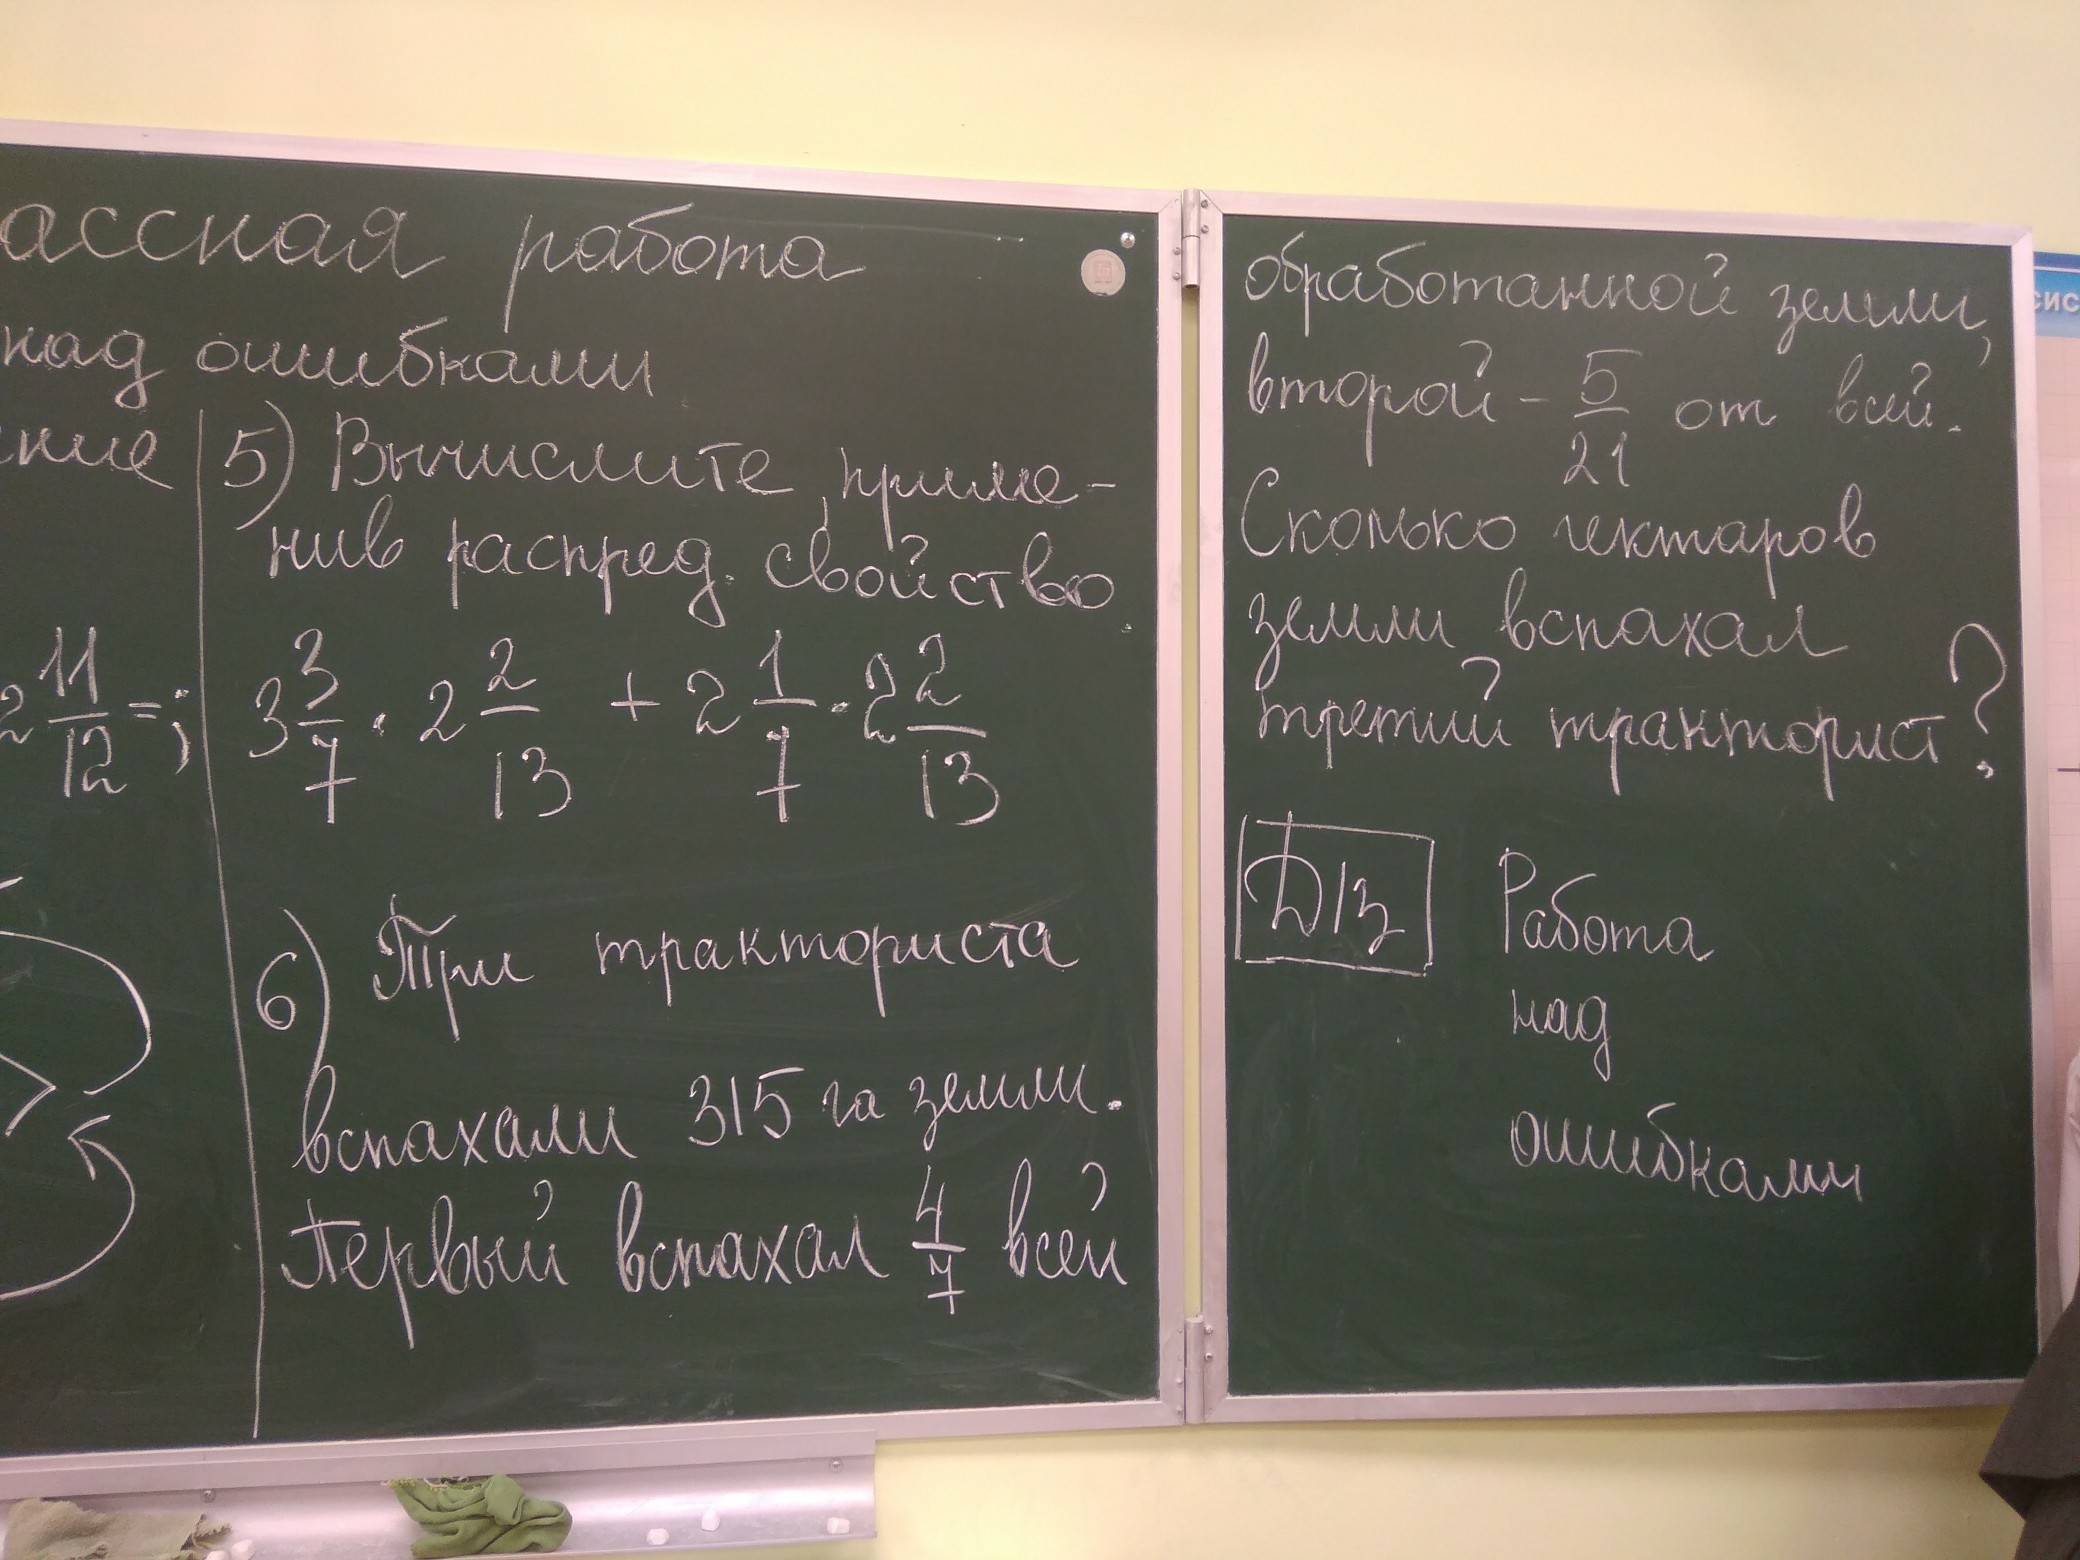 ассная работа
над ошибками
ение
2 11/12 =;
5) Вычислите, приме-
нив распред. свойство.
3 3/7 · 2 2/13 + 2 1/7 · 2 2/13
6) Три тракториста
вспахали 315 га земли.
Первый вспахал 4/7 всей
обработанной земли,
второй - 5/21 от всей.
Сколько гектаров
земли вспахал
третий тракторист?
Д/з Работа
над
ошибками
сис